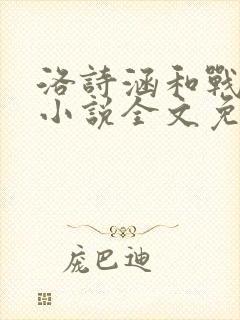 洛詩涵和戰
小說全文免
庞巴迪